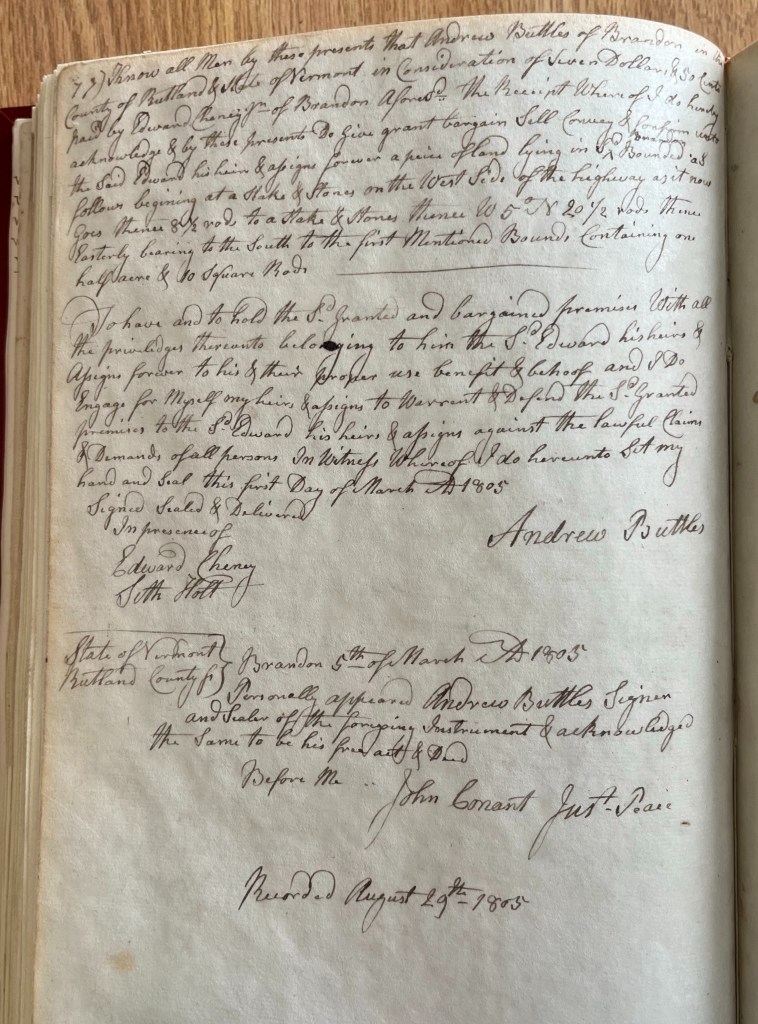 73) Know all Men by these presents that Andrew Buttles of Brandon in the
County of Rutland & State of Vermont in Consideration of Seven Dollars & 50 Cents
paid by Edward Cheney Jn. of Brandon Aforesd. The Receipt Whereof I do hereby
acknowledge & by these presents Do Give grant bargain Sell Convey & Confirm unto
the Said Edward his heirs & assigns forever a peice of land lying in Sd. Brandon Bounded as
follows begining at a Stake & Stones on the West Side of the highway as it now
Goes thence 8½ rods to a Stake & Stones thence W 5° N 20½ rods thence
Easterly bearing to the South to the first Mentioned Bounds Containing one
half acre & 10 Square Rods
To have and to hold the Sd. Granted and bargained premises With all
the priviledges thereunto belonging to him the Sd. Edward his heirs &
Assigns forever to his & their proper use benifit & behoof and I Do
Engage for Myself my heirs & assigns to Warrent & Defend the Sd. Granted
premises to the Sd. Edward his heirs & assigns against the lawful Claims
& Demands of all persons In Witness Whereof I do hereunto Set my
hand and Seal this first Day of March AD 1805
Signed Sealed & Delivered
In presence of
Andrew Buttles
Edward Cheney
Seth Holt
State of Vermont }
Rutland County ss } Brandon 5th of March AD 1805
Personally appeared Andrew Buttles Signer
and Sealer of the foregoing Instrument & acknowledged
the Same to be his free act & Deed
Before Me .. John Conant Just. Peace
Recorded August 29th 1805